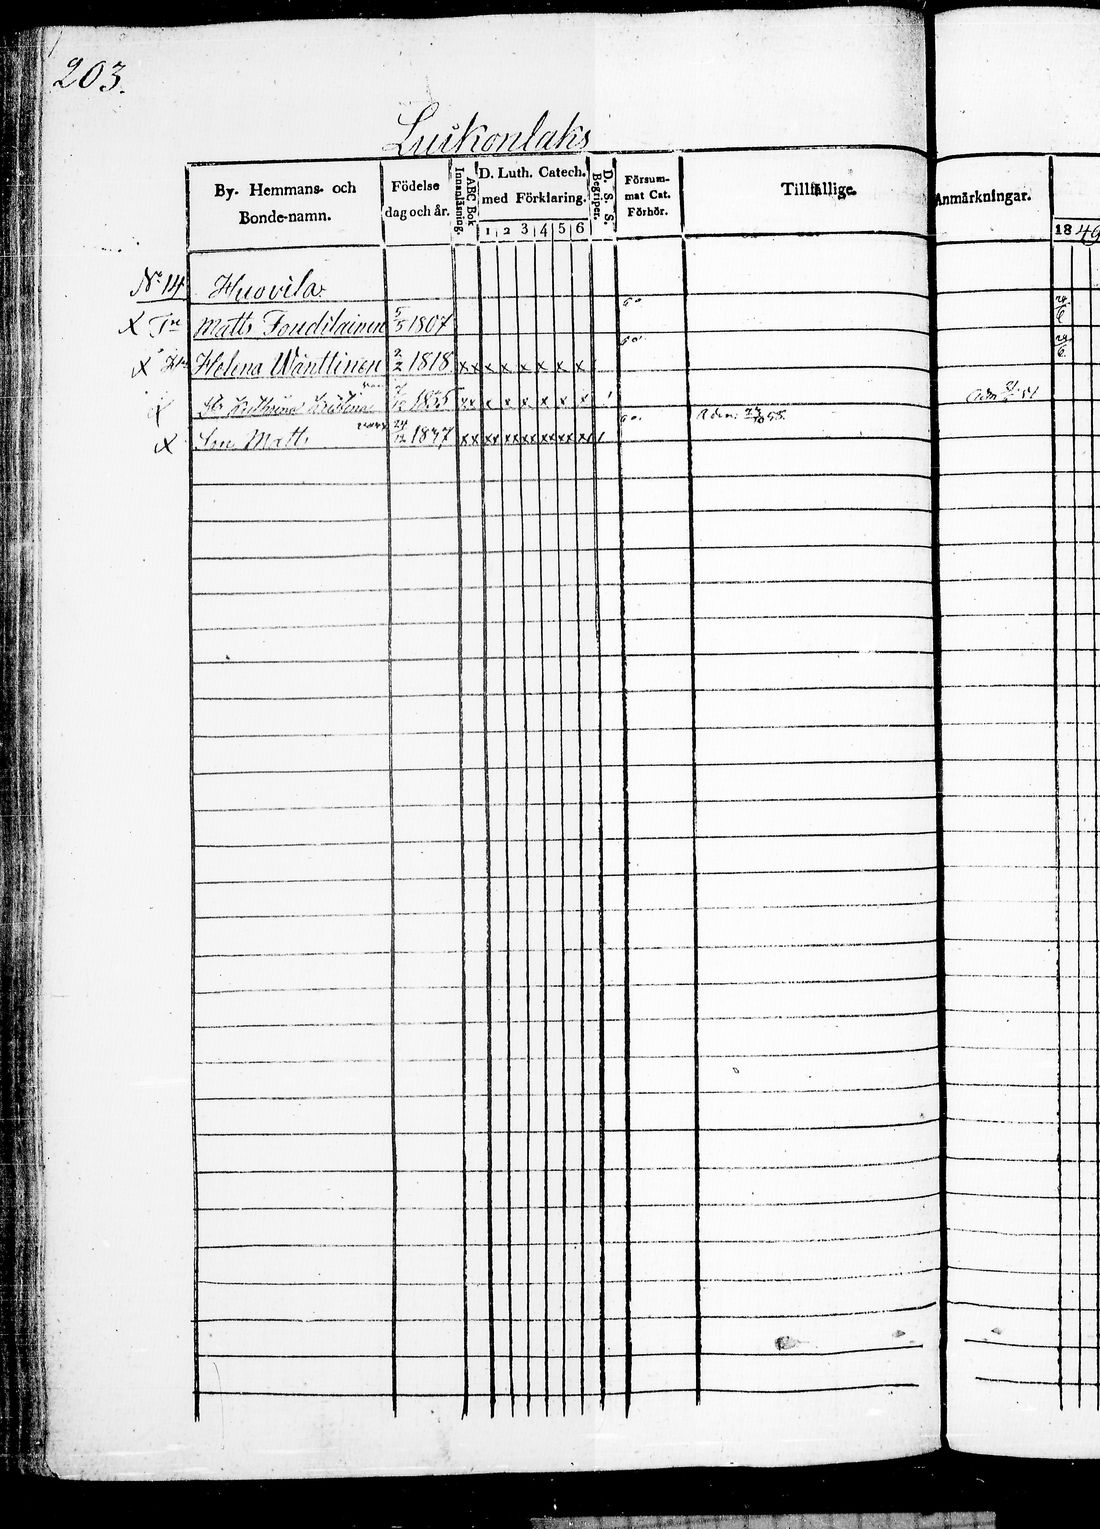 203.
Luikonlaks
By- Hemmans- och Bonde-namn.
Födelse dag och år.
ABC Bok Innanläsning.
D. Luth. Catech. med Förklaring.
1 2 3 4 5 6
D. S. S. Begriper.
Försummat Cat. Förhör.
Tillfällige
Anmärkningar.
1849
No 14 Huovila
X Matts 5/5 1807
X Helena Wänttinen 2/2 1818 x x x x x x x x
Kristina x x x x x x x x
X Son Matts 24/12 1847 xx xx xx xx xx xx xx